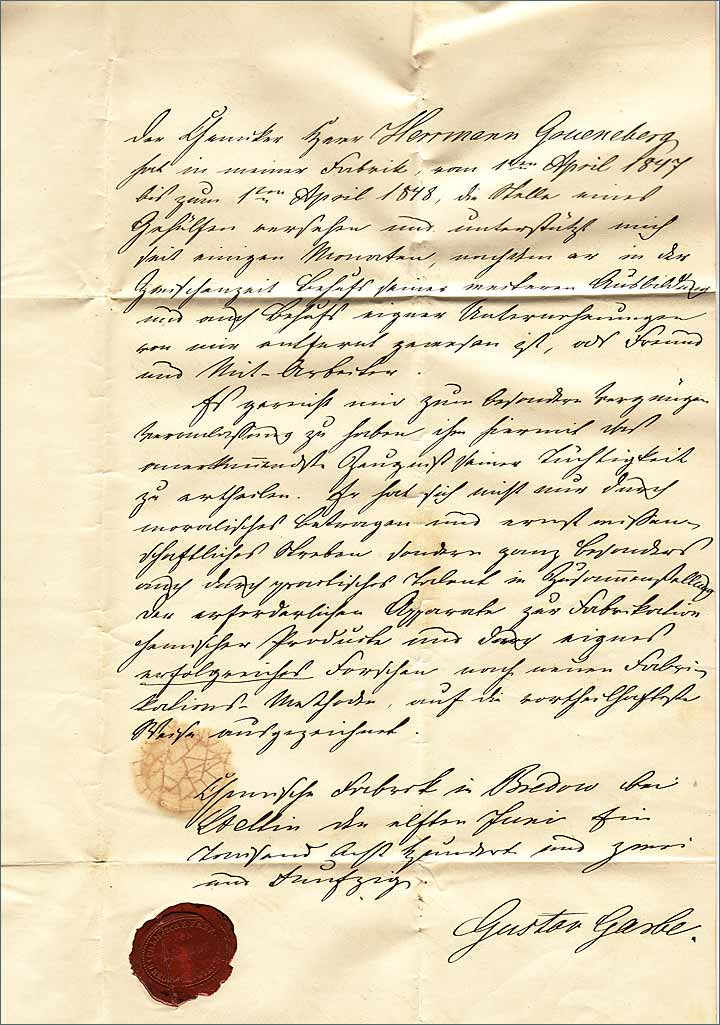 Der Chemiker Herr Herrmann Grueneberg
hat in meiner Fabrik, vom 1ten April 1847
bis zum 1ten April 1848, die Stelle eines
Gehülfen versehen und unterstützt mich
seit einigen Monaten, nachdem er in der
Zwischenzeit behufs seiner weiteren Ausbildung
und auch behufs eigner Unternehmungen
von mir entfernt gewesen ist, als Freund
und Mit-Arbeiter.
Es gereicht mir zum besondern Vergnügen
Veranlassung zu haben ihm hiermit das
anerkennendste Zeugniß seiner Tüchtigkeit
zu ertheilen. Er hat sich nicht nur durch
moralisches Betragen und ernst wißen-
schaftliches Streben sondern ganz besonders
auch durch practisches Talent in Zusammenstellung
der erforderlichen Apparate zur Fabrikation
chemischer Producte und durch eignes
erfolgreiches Forschen nach neuen Fabri-
kations-Methoden, auf die vortheilhafteste
Weise ausgezeichnet.
Chemische Fabrik in Bredow bei
Stettin den elften Juni Ein
Tausend Acht Hundert und zwei
und Funfzig.
Gustav Garbe.